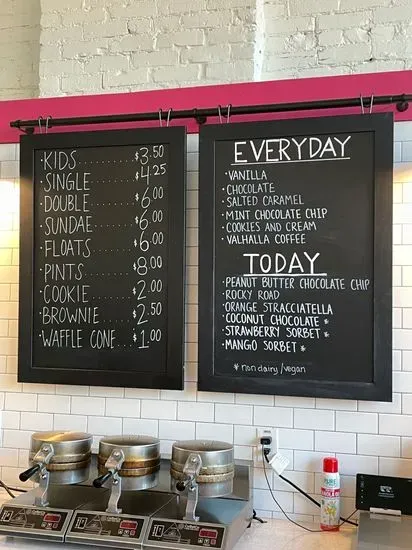 · KIDS......... $3.50
· SINGLE....... $4.25
· DOUBLE....... $6.00
· SUNDAE....... $6.00
· FLOATS....... $6.00
· PINTS........ $8.00
· COOKIE....... $2.00
· BROWNIE...... $2.50
· WAFFLE CONE... $1.00
EVERYDAY
· VANILLA
· CHOCOLATE
· SALTED CARAMEL
· MINT CHOCOLATE CHIP
· COOKIES AND CREAM
· VALHALLA COFFEE
TODAY
· PEANUT BUTTER CHOCOLATE CHIP
· ROCKY ROAD
· ORANGE STRACCIATELLA
· COCONUT CHOCOLATE *
· STRAWBERRY SORBET *
· MANGO SORBET *
* non dairy/vegan
PURE